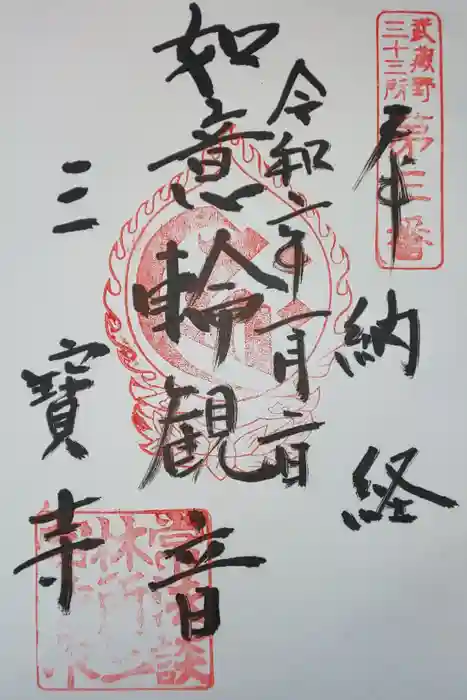 武蔵野
三十三所
第三番
奉納経
令和二年十一月二日
如意輪観音
三寳寺